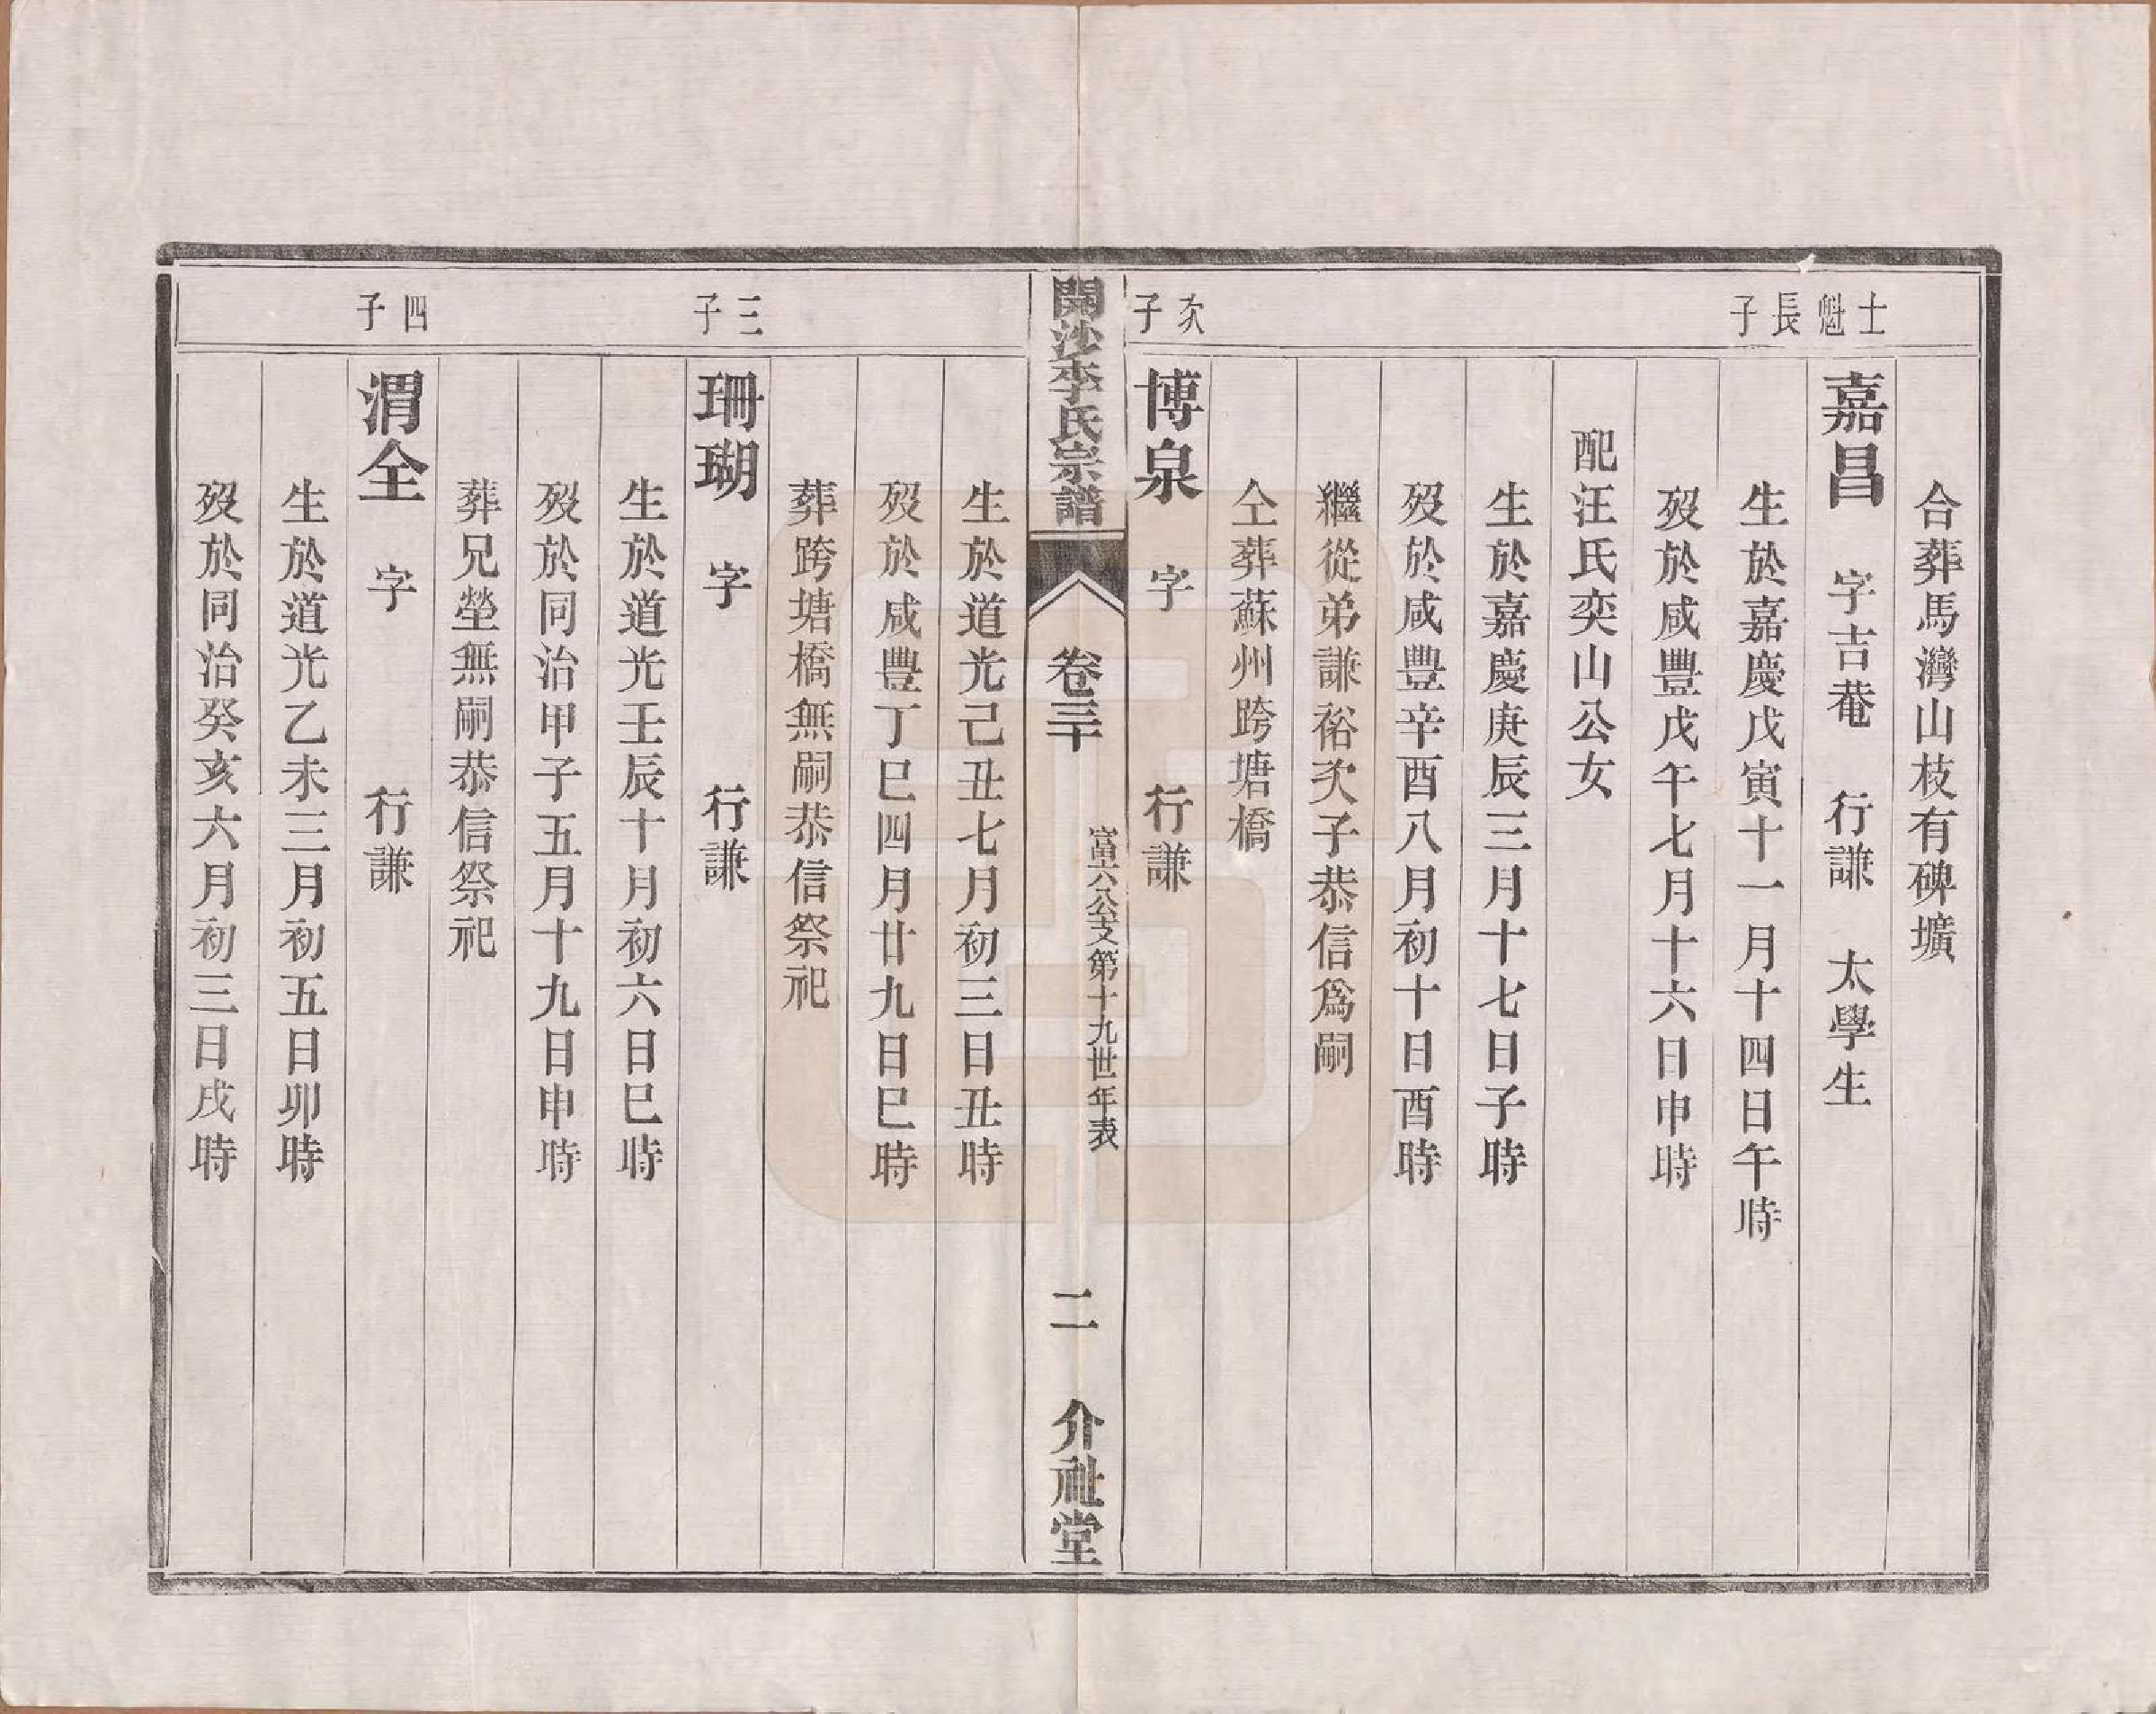 合葬馬灣山枝有碑壙
士魁長子
嘉昌　字吉菴　行謙　太學生
生於嘉慶戊寅十一月十四日午時
歿於咸豐戊午七月十六日申時
配汪氏奕山公女
生於嘉慶庚辰三月十七日子時
歿於咸豐辛酉八月初十日酉時
繼從弟謙裕次子恭信爲嗣
仝葬蘇州跨塘橋
次子
博泉　字　行謙
開沙李氏宗譜　卷三十　富六公支第十九世年表　二　介祉堂
生於道光己丑七月初三日丑時
歿於咸豐丁巳四月廿九日巳時
葬跨塘橋無嗣恭信祭祀
三子
珊瑚　字　行謙
生於道光壬辰十月初六日巳時
歿於同治甲子五月十九日申時
葬兄塋無嗣恭信祭祀
四子
渭全　字　行謙
生於道光乙未三月初五日卯時
歿於同治癸亥六月初三日戌時